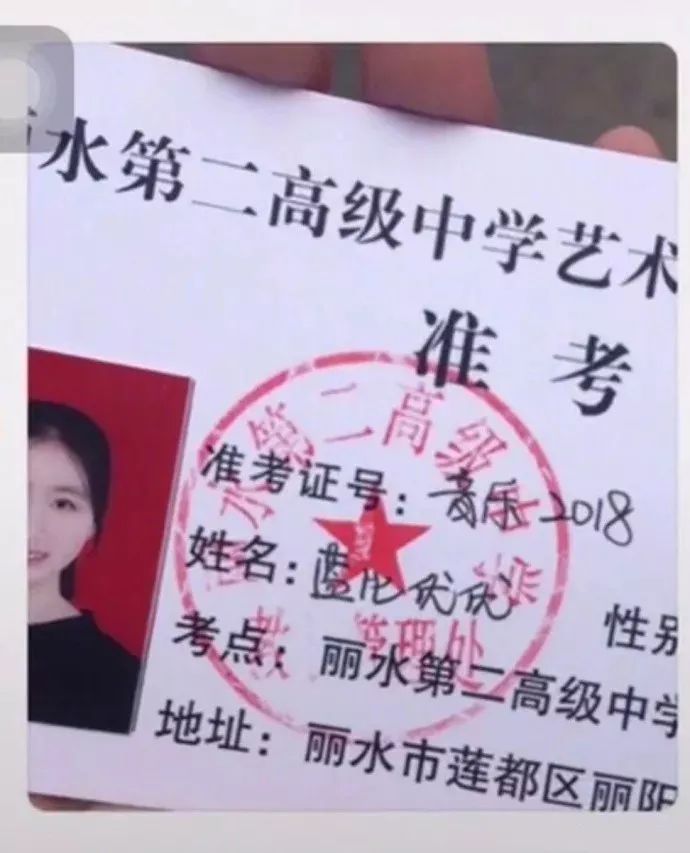 水第二高级中学艺术
准考
准考证号：音乐2018
姓名：蓝伦优优
性别
考点：丽水第二高级中学
地址：丽水市莲都区丽阳
第二高级中
管理处